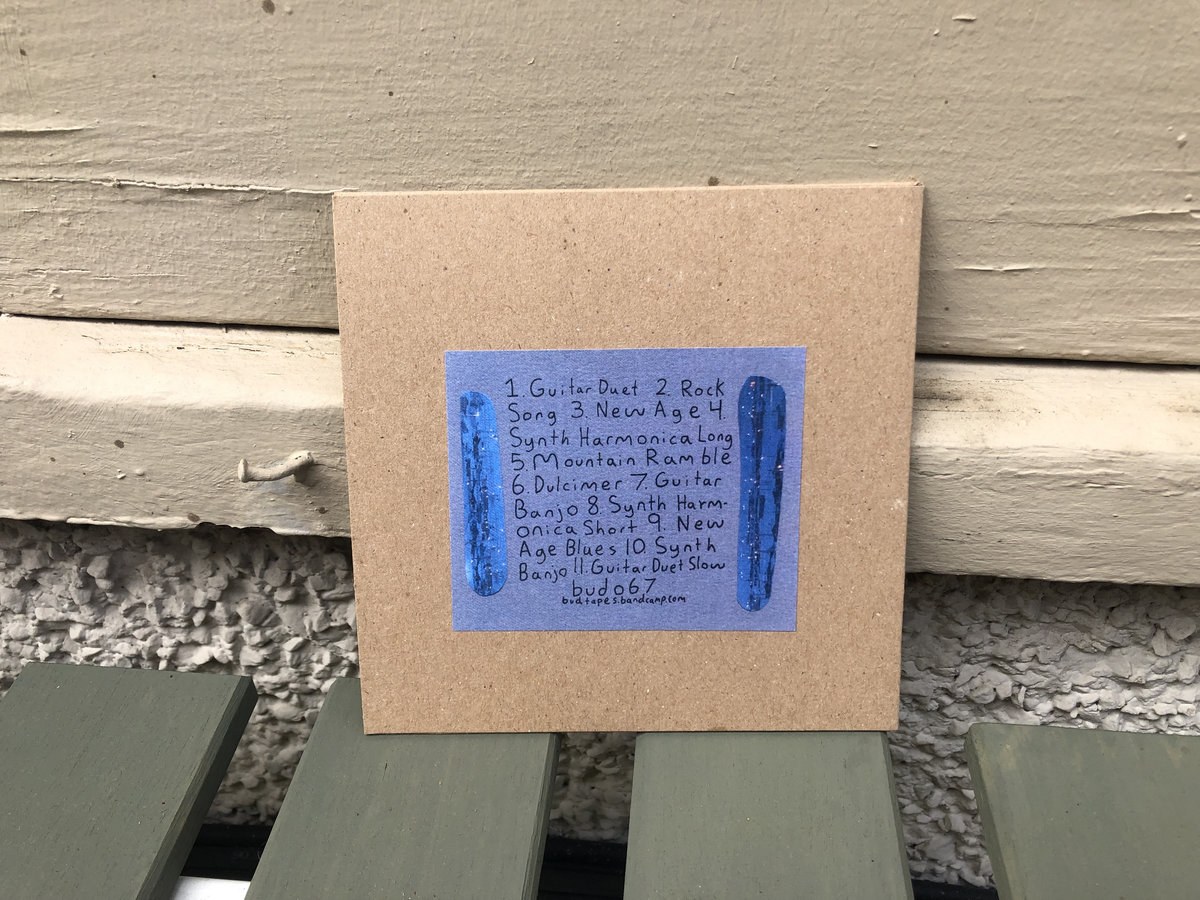 1. Guitar Duet 2. Rock
Song 3. New Age 4.
Synth Harmonica Long
5. Mountain Ramble
6. Dulcimer 7. Guitar
Banjo 8. Synth Harm-
onica Short 9. New
Age Blues 10. Synth
Banjo 11. Guitar Duet Slow
bud067
budtapes.bandcamp.com